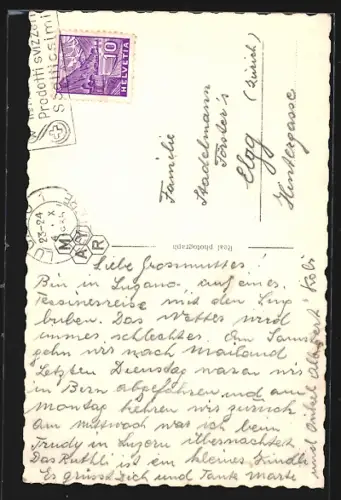 Prodotti svizzeri
Squisitissimi
10
HELVETIA
LUGANO
23-24
X
M A R
Real photograph
Familie
Stadelmann
Förster's
Elgg (Zürich)
Hintergasse
Liebe Grossmutter!
Bin in Lugano auf einer
Tessinerreise mit den
buben. Das Wetter wird
immer schlechter. Am Sams
gehn wir nach Mailand
Letzten Dienstag waren wir
in Bern abgefahren und am
Montag kehren wir zurück
Am Mittwoch war ich beim
Trudy in Luzern übernachtet
Das Ruthli ist ein kleines Kindli
Es grüsst dich und Tante Marte
und Onkel Albert Köbi